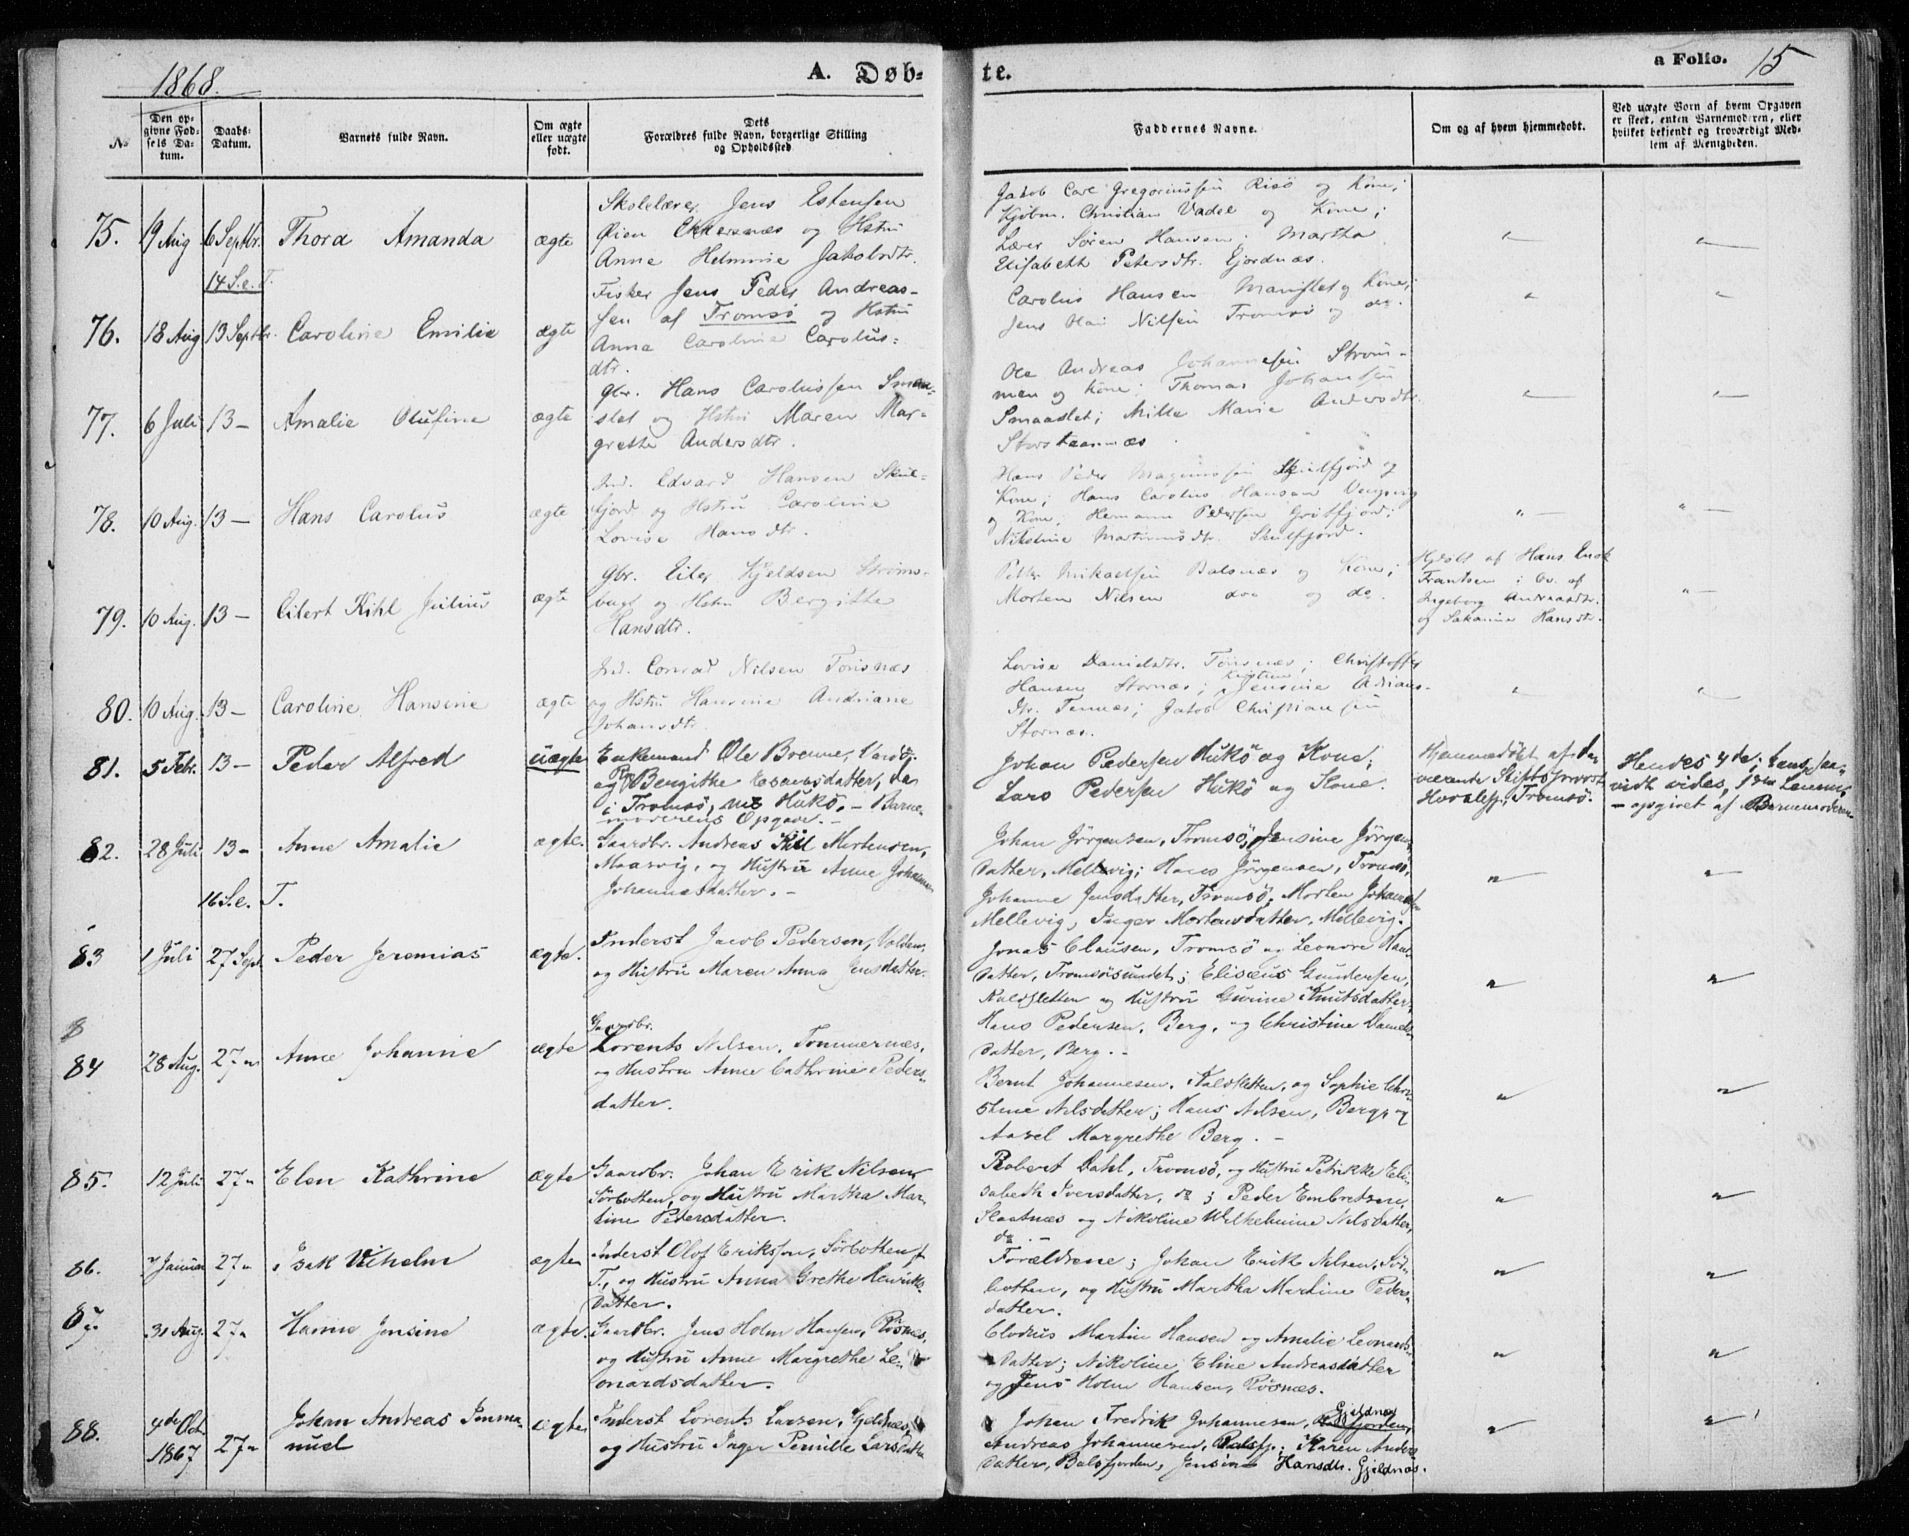 1868.
A. Døb-
te.
a Folio. 15
No
Den op-
givne Fød-
sels Da-
tum.
Daabs-
Datum.
Barnets fulde Navn.
Om ægte
eller uægte
født.
Dets
Forældres fulde Navn, borgerlige Stilling
og Opholdssted.
Faddernes Navne.
Om og af hvem hjemmedøbt.
Ved uægte Børn af hvem Opgaven
er skeet, enten Barnemoderen, eller
hvilket bekjendt og troværdigt Med-
lem af Menigheden.
75. 19 Aug 6 Septbr. Thora Amanda ægte
Skolelærer Jens Estensen
Øien Ekkersnæs og Hstru
Anne Helmine Jakobsdtr.
Jakob Carl Gregoriussen Risø og Kone;
Kjøbm. Christian Vadel og Kone;
Lærer Søren Hansen; Martha
Elisabeth Petersdtr. Ejordnæs.
14 S.e.T.
76. 18 Aug 13 Septbr. Caroline Emilie ægte
Fisker Jens Peder Andreas-
sen af Tromsø og Hstru
Anna Caroline Carolus-
dtr.
Carolus Hansen og Kone;
Jens Nilsen Tromsø og do.
77. 6 Juli 13 — Amalie Olufine ægte
Gbr. Hans Carolussen Smaa-
slet og Hstru Maren Mar-
grethe Andersdtr.
Ole Andreas Johannesen Strøm-
men og Kone; Thomas Johansen
Smaaslet; Milla Marie Andersdtr.
Storsteennæs
78. 10 Aug. 13 — Hans Carolus ægte
Ind. Edvard Hansen Skul-
fjord og Hstru Caroline
Lovise Hansdtr.
Hans Peder Magnussen Skulfjord og
Kone; Hans Carolus Hansen
og Kone; Hermann Pedersen Grøtfjord;
Nikoline Martinusdtr. Skulfjord.
79. 10 Aug. 13 — Eilert Kihl Julius ægte
Gbr. Eiler Kjeldsen Strøms-
bugt og Hstru Bergitte
Hansdtr.
Petter Mikaelsen Balsnæs og Kone;
Morten Nilsen do og do.
Hjdøbt af Hans Enok
Frantsen; Ov. af
Ingeborg Andreasdtr.
og Sakarine Hansdtr.
80. 10 Aug. 13 — Caroline Hansine ægte
Ind. Conrad Nilsen Tonsnæs
og Hstru Hansine Andriane
Johansdtr.
Lovise Danielsdtr. Tonsnæs; Christoffer
Hansen Stornæs; Jensine Adrians-
dtr. Tennæs; Jakob Christiansen
Stornæs.
81. 5 Febr. 13 — Peder Alfred uægte
Enkemand Ole Broenne,
og Bergithe Esaiasdatter,
i Tromsø, Hukø, — Barne-
moderens Opgave. —
Johan Pedersen Hukø og Kone;
Lars Pedersen Hukø og Kone.
Hjemmedøbt af da-
værende Stiftsprovst
Tromsø.
Hendes 4de;
vidt vides,
— opgivet af Barnemoderen
82. 28 Juli 13 — Anne Amalie ægte.
Gaardbr. Andreas Kiil Mortensen,
Maasvig, og Hustru Anne Johanne
Johannesdatter. —
Johan Jørgensen, Tromsø; Jensine Jørgens
datter, Mellevig; Hans Jørgensen, Tromsø,
Johanne Jensdatter, Tromsø; Morten Johannes
Mellevig, Inger Mortensdatter, Mellevig.
16 S.e. T.
83 1 Juli 27 Sept. Peder Jeremias ægte.
Inderst Jacob Pedersen,
og Hustru Maren Anna Jensdatter.
Jonas Clausen, Tromsø og Leonore Hans
datter, Tromsøsundet; Elisæus Gundersen,
Kaldsletten og Hustru Gurine Knutsdatter;
Hans Pedersen, Berg, og Christine Daniels
datter, Berg. —
84 28 Aug. 27 — Anne Johanne ægte
Gaardbr.
Lorents Nilsen, Tommernæs,
og Hustru Anne Cathrine Peders-
datter.
Bernt Johannesen, Kaldsletten, og Sophie Chri-
stine Nilsdatter; Hans Nilsen, Berg, og
Margrethe Berg. —
85. 12 Juli 27 — Elen Kathrine ægte
Gaardbr. Johan Erik Nilsen,
Sørbotten, og Hustru Martha Mar-
tine Pedersdatter.
Robert Dahl, Tromsø, og Hustru Petrikke Eli-
sabeth Iversdatter, do; Peder Embretsen,
Slaatnæs og Nikoline Wilhelmine Nilsdatter,
do. —
86. Januar 27 — Isak Vilhelm ægte
Inderst Olof Eriksson, Sørbotten,
T., og Hustru Anna Grethe Henriks
datter.
Forældrene; Johan Erik Nilsen, Sør-
botten, og Hustru Martha Martine Peders-
datter.
87 31 Aug. 27 — Hanne Jensine ægte.
Gaardbr. Jens Holm Hansen, Røsnes,
og Hustru Anne Margrethe Le-
onardsdatter.
Martin Hansen og Amalie Leonards
datter; Nikoline Eline Andreasdatter
og Jens Holm Hansen, Røsnes.
88. 4de Oct
1867 27 — Johan Andreas Imma-
nuel ægte
Inderst Lorents Larsen, Gjeldnæs,
og Hustru Inger Pernille Larsdatter
Johan Fredrik Johannesen, Gjeldnæs
Andreas Johannesen, Balsfj.; Karen Anders
datter, Balsfjorden, Jensine Hansdtr. Gjeldnæs.